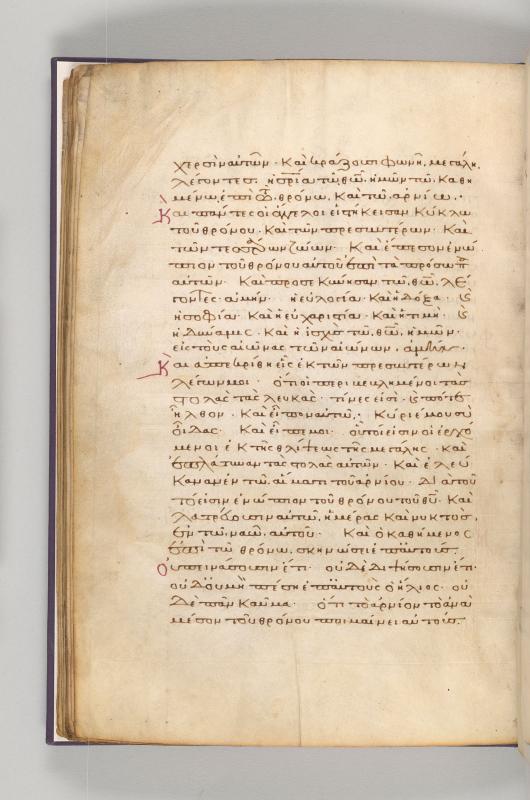 χερσὶν αὐτῶν · Καὶ κράζουσι φωνῆ μεγάλη
λέγοντες · ἡ σρία τῶ θῶ ἡμῶν τῶ καθη
μένω ἐπὶ τοῦ θρόνου, καὶ τῶ ἀρνίω ·
Και πάντες οἱ ἄγγελοι εἱστήκεισαν κύκλω
τοῦ θρόνου · Καὶ τῶν πρεσβυτέρων · Καὶ
τῶν τεσσάρων ζώων · Καὶ ἔπεσον ἐνώ
πιον τοῦ θρόνου αὐτοῦ ἐπὶ τὰ πρόσωπα
αὐτῶν · Καὶ προσεκύνησαν τῶ θῶ, λέ
γοντες · ἀμήν · ἡ εὐλογία · Καὶ ἡ δόξα · καὶ
ἡ σοφία · Καὶ ἡ εὐχαριστία · Καὶ ἡ τιμὴ · καὶ
ἡ δύναμις · Καὶ ἡ ἰσχὺς τῶ θῶ ἡμῶν ·
εἰς τοὺς αἰῶνας τῶν αἰώνων · ἀμήν ·
Και ἀπεκρίθη εἷς ἐκ τῶν πρεσβυτέρων
λέγων μοι · οὗτοι οἱ περιβεβλημένοι τὰς
στολὰς τὰς λευκὰς · τίνες εἰσὶ · καὶ πόθεν
ἦλθον · Καὶ εἶπον αὐτῶ · Κύριέ μου σὺ
οἶδας · Καὶ εἶπέ μοι · οὗτοί εἰσιν οἱ ἐρχό
μενοι ἐκ τῆς θλίψεως τῆς μεγάλης · Καὶ
ἐπλάτυναν τὰς στολὰς αὐτῶν · Καὶ ἐλεύ
καναν ἐν τῶ αἵματι τοῦ ἀρνίου · Διὰ τοῦ
τό εἰσιν ἐνώπιον τοῦ θρόνου τοῦ θυ · Καὶ
λατρεύουσιν αὐτῶ, ἡμέρας καὶ νυκτὸς,
ἐν τῶ ναῶ αὐτοῦ · Καὶ ὁ καθήμενος
ἐπὶ τῶ θρόνω, σκηνώσει ἐπ' αὐτούς ·
Οὐ πεινάσουσιν ἔτι · οὐδὲ διψήσουσιν ἔτι ·
οὐδ' οὐ μὴ πέση ἐπ' αὐτοὺς ὁ ἥλιος · οὐ
δὲ πᾶν καῦμα · ὅτι τὸ ἀρνίον τὸ ἀνὰ
μέσον τοῦ θρόνου ποιμαίνει αὐτούς ·